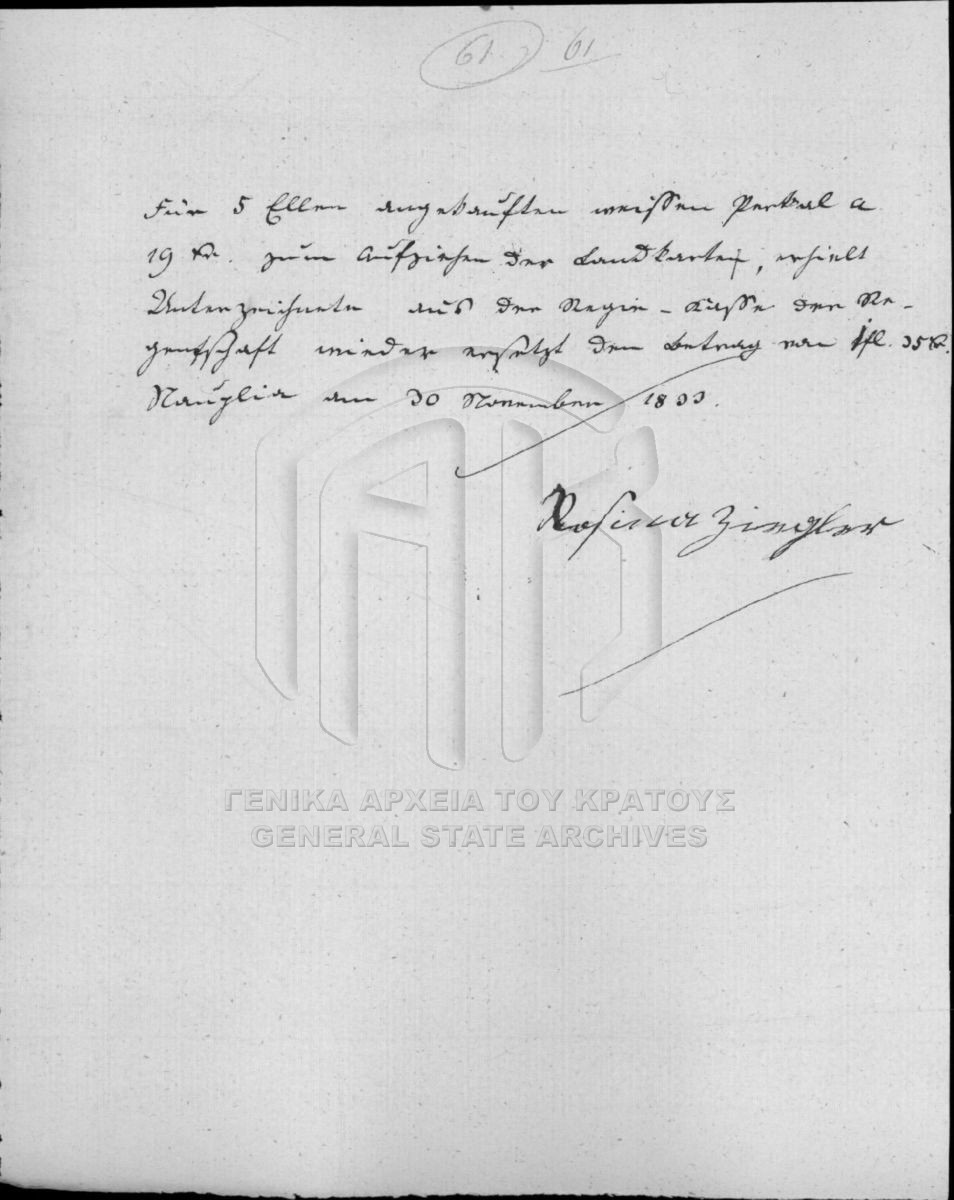 61 61
Für 5 Ellen angekauften weissen Perkal a
19 Kr. zum Aufziehen der Landkarten, erhielt
Unterzeichnete aus der Regie-Kasse der Re-
gentschaft wieder ersetzt den Betrag von 1 fl. 35 Kr.
Nauplia am 30 November 1833.
Rosina Ziegler
ΓΕΝΙΚΑ ΑΡΧΕΙΑ ΤΟΥ ΚΡΑΤΟΥΣ
GENERAL STATE ARCHIVES